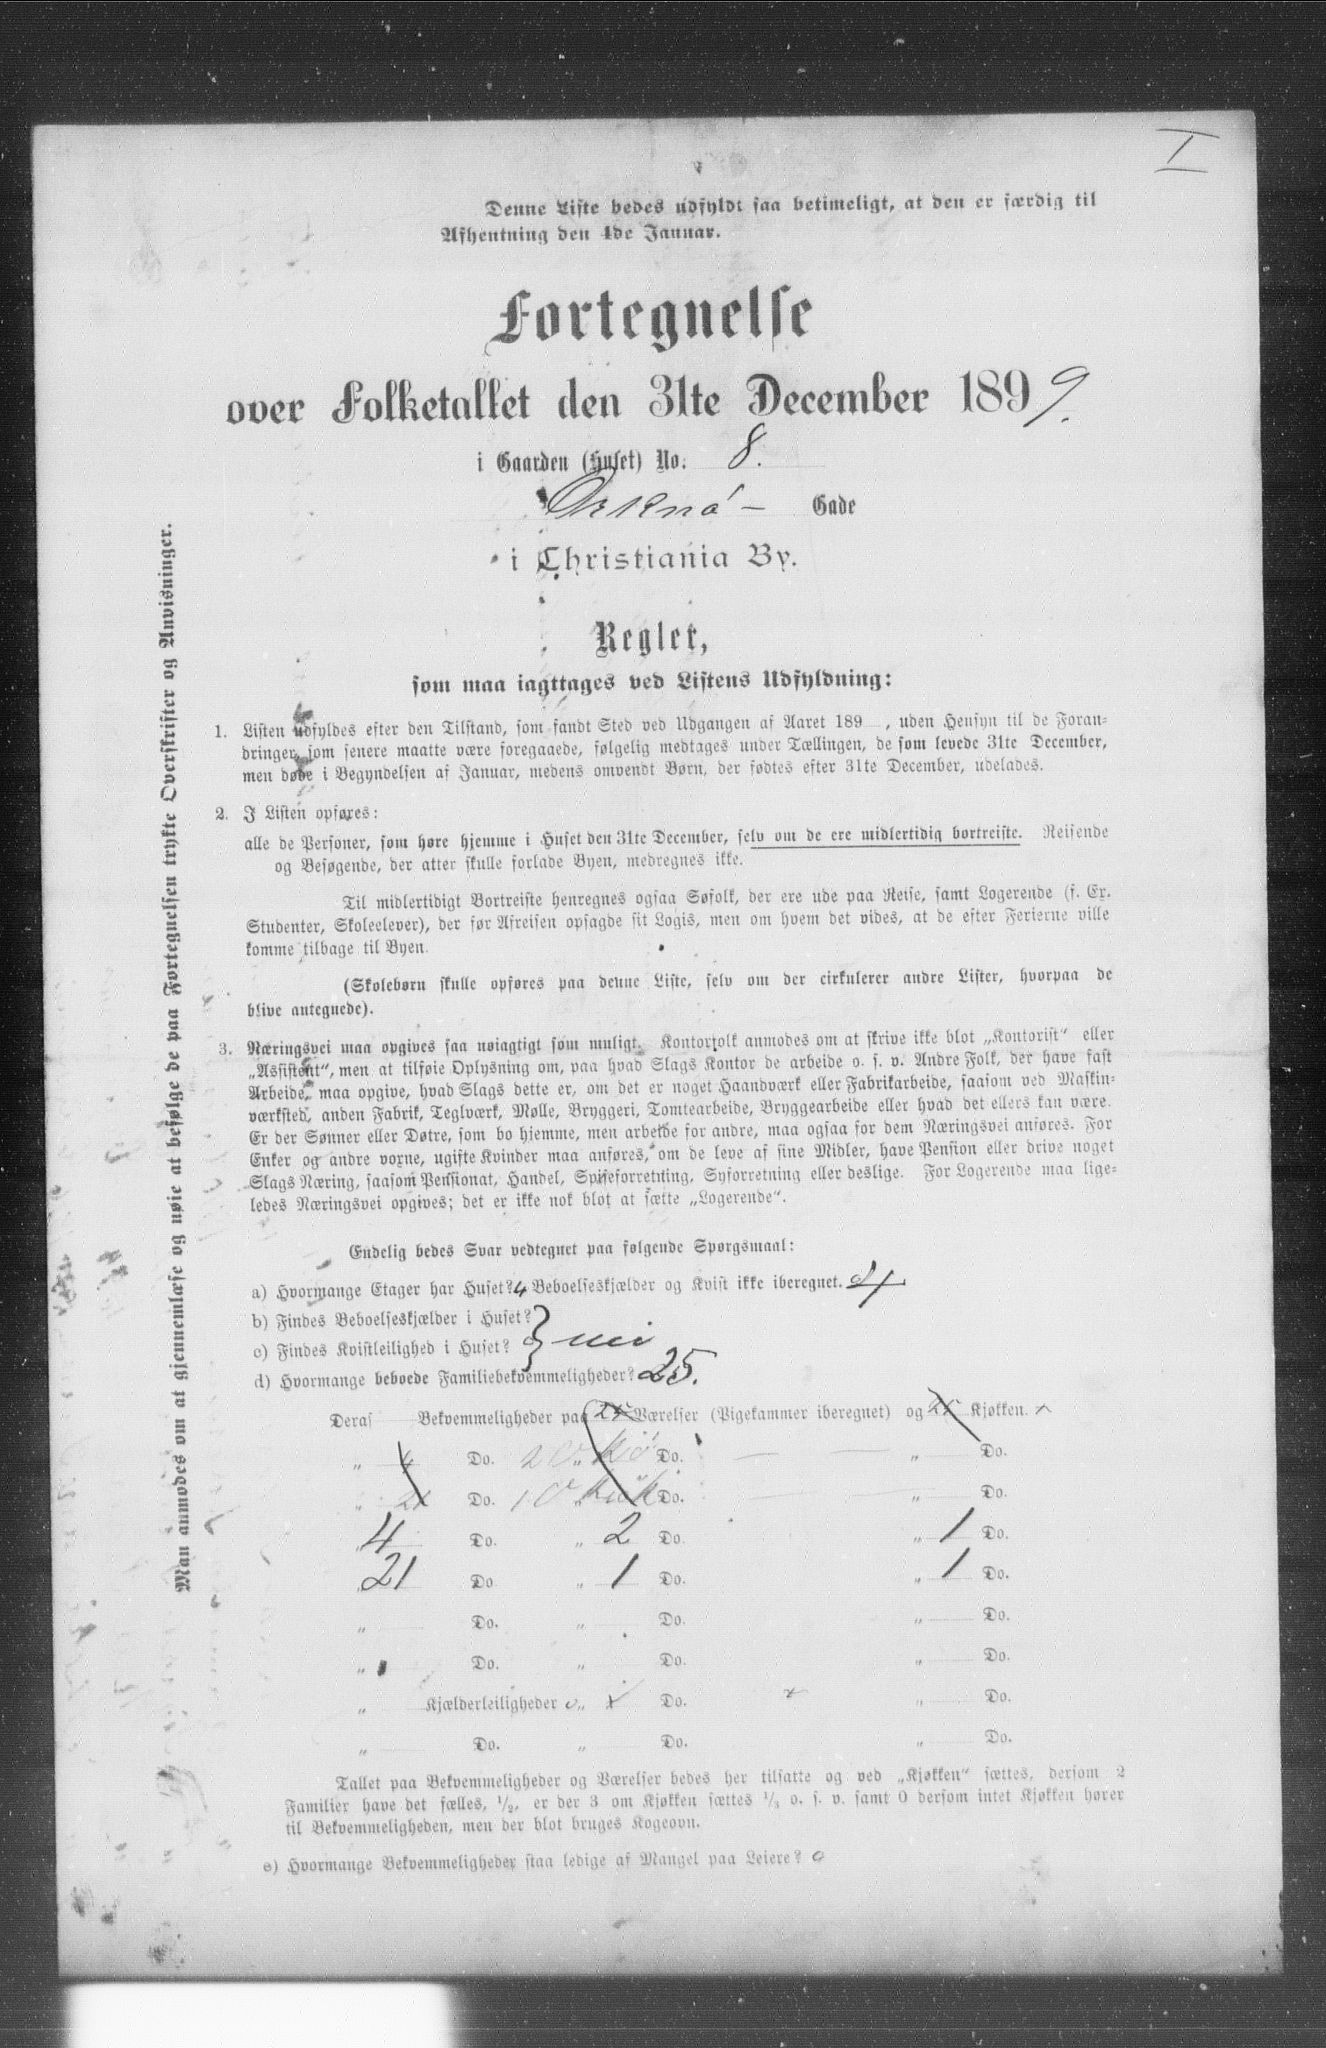 I
Denne Liste bedes udfyldt saa betimeligt, at den er færdig til
Afhentning den 4de Januar.
Fortegnelse
over Folketallet den 31te December 1899.
i Gaarden (Huset) No. 8.
Orknø- Gade
i Christiania By.
Regler,
som maa iagttages ved Listens Udfyldning:
1. Listen udfyldes efter den Tilstand, som fandt Sted ved Udgangen af Aaret 189 , uden Hensyn til de Foran-
dringer, som senere maatte være foregaaede, følgelig medtages under Tællingen, de som levede 31te December,
men døde i Begyndelsen af Januar, medens omvendt Børn, der fødtes efter 31te December, udelades.
2. I Listen opføres:
alle de Personer, som høre hjemme i Huset den 31te December, selv om de ere midlertidig bortreiste. Reisende
og Besøgende, der atter skulle forlade Byen, medregnes ikke.
Til midlertidigt Bortreiste henregnes ogsaa Søfolk, der ere ude paa Reise, samt Logerende (f. Ex.
Studenter, Skoleelever), der før Afreisen opsagde sit Logis, men om hvem det vides, at de efter Ferierne ville
komme tilbage til Byen.
(Skolebørn skulle opføres paa denne Liste, selv om der cirkulerer andre Lister, hvorpaa de
blive antegnede).
3. Næringsvei maa opgives saa nøiagtigt som muligt. Kontorfolk anmodes om at skrive ikke blot „Kontorist“ eller
„Assistent“, men at tilføie Oplysning om, paa hvad Slags Kontor de arbeide o. s. v. Andre Folk, der have fast
Arbeide, maa opgive, hvad Slags dette er, om det er noget Haandværk eller Fabrikarbeide, saasom ved Maskin-
værksted, anden Fabrik, Teglværk, Mølle, Bryggeri, Tomtearbeide, Bryggearbeide eller hvad det ellers kan være.
Er der Sønner eller Døtre, som bo hjemme, men arbeide for andre, maa ogsaa for dem Næringsvei anføres. For
Enker og andre voxne, ugifte Kvinder maa anføres, om de leve af sine Midler, have Pension eller drive noget
Slags Næring, saasom Pensionat, Handel, Spiseforretning, Syforretning eller deslige. For Logerende maa lige-
ledes Næringsvei opgives; det er ikke nok blot at sætte „Logerende“.
Endelig bedes Svar vedtegnet paa følgende Spørgsmaal:
a) Hvormange Etager har Huset? 4 Beboelseskjælder og Kvist ikke iberegnet. 4
b) Findes Beboelseskjælder i Huset?
c) Findes Kvistleilighed i Huset? } nei
d) Hvormange beboede Familiebekvemmeligheder? 25.
Deraf Bekvemmeligheder paa Værelser (Pigekammer iberegnet) og Kjøkken.
„ 4 Do. „ Do. „ Do.
„ 21 Do. „ Do. „ Do.
„ 4 Do. „ 2 Do. „ 1 Do.
„ 21 Do. „ 1 Do. „ 1 Do.
„ Do. „ Do. „ Do.
„ Do. „ Do. „ Do.
„ Kjælderleiligheder „ Do. „ Do.
„ Do. „ Do. „ Do.
Tallet paa Bekvemmeligheder og Værelser bedes her tilsatte og ved „Kjøkken“ sættes, dersom 2
Familier have det fælles, 1/2, er der 3 om Kjøkken sættes 1/3 o. s. v. samt 0 dersom intet Kjøkken hører
til Bekvemmeligheden, men der blot bruges Kogeovn.
e) Hvormange Bekvemmeligheder staa ledige af Mangel paa Leiere? 0
Man anmodes om at gjennemlæse og nøie at befølge de paa Fortegnelsen trykte Overskrifter og Anvisninger.